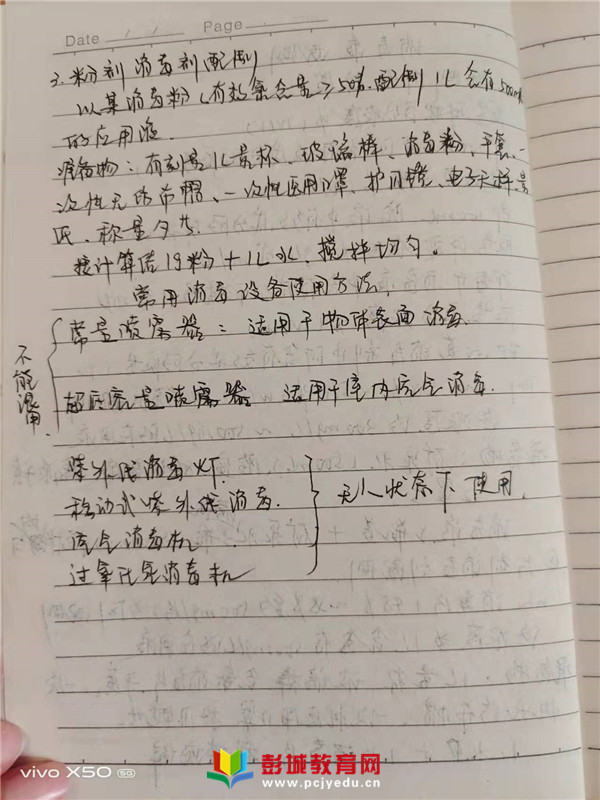 Date / / Page
3.粉剂消毒剂配制
以某消毒粉(有效氯含量≥50%.配制1L含有500mg
的应用液.
准备物:有刻度1L量杯、玻璃棒、消毒粉、手套、一
次性无纺布帽、一次性医用口罩、护目镜、电子天秤、量
匙、称量勺等.
按计算结1g粉+1L水,搅拌均匀。
常用消毒设备使用方法,
不能混用.
常量喷雾器:适用于物体表面消毒.
超低容量喷雾器 适用于室内空气消毒.
紫外线消毒灯.
移动式紫外线消毒.
空气消毒机
过氧化氢消毒机
无人状态下使用.
vivo X50 5G
彭城教育网
www.pcjyedu.cn